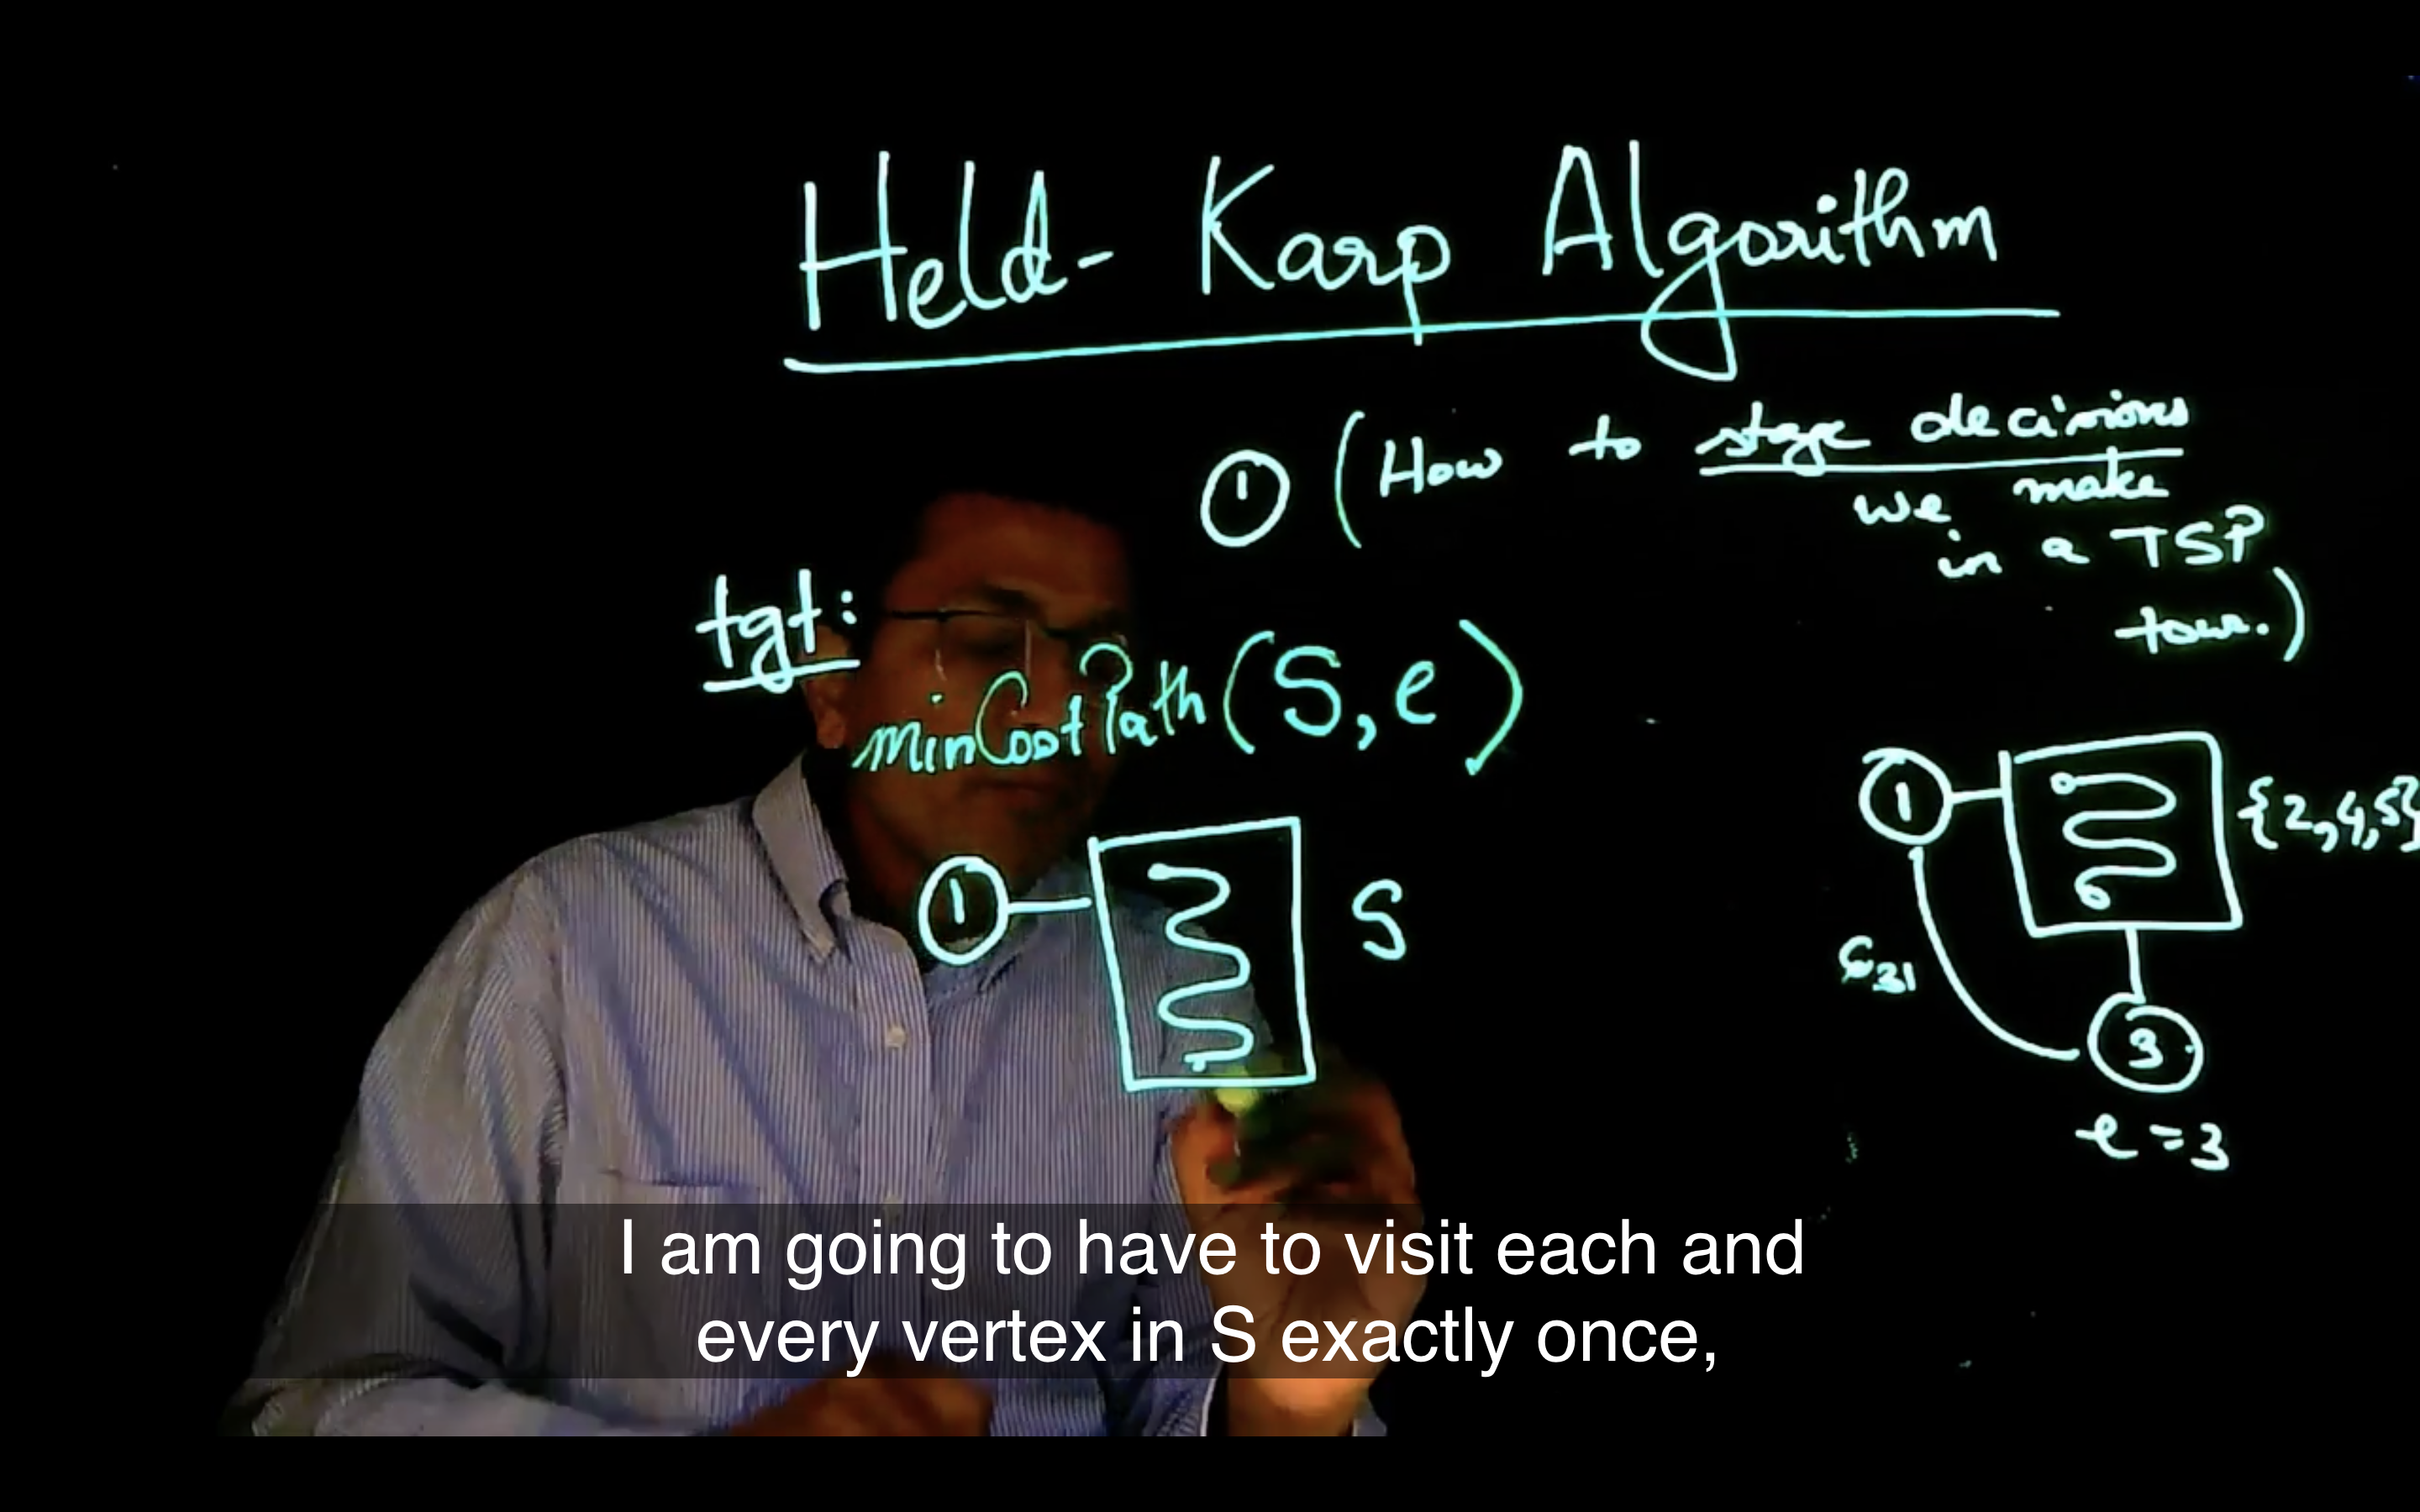 Held-Karp Algorithm
① (How to stage decisions
we make
in a TSP
tour.)
tgt:
minCostPath(S, e)
1
S
1
{2,4,5}
C31
3
e=3
I am going to have to visit each and
every vertex in S exactly once,